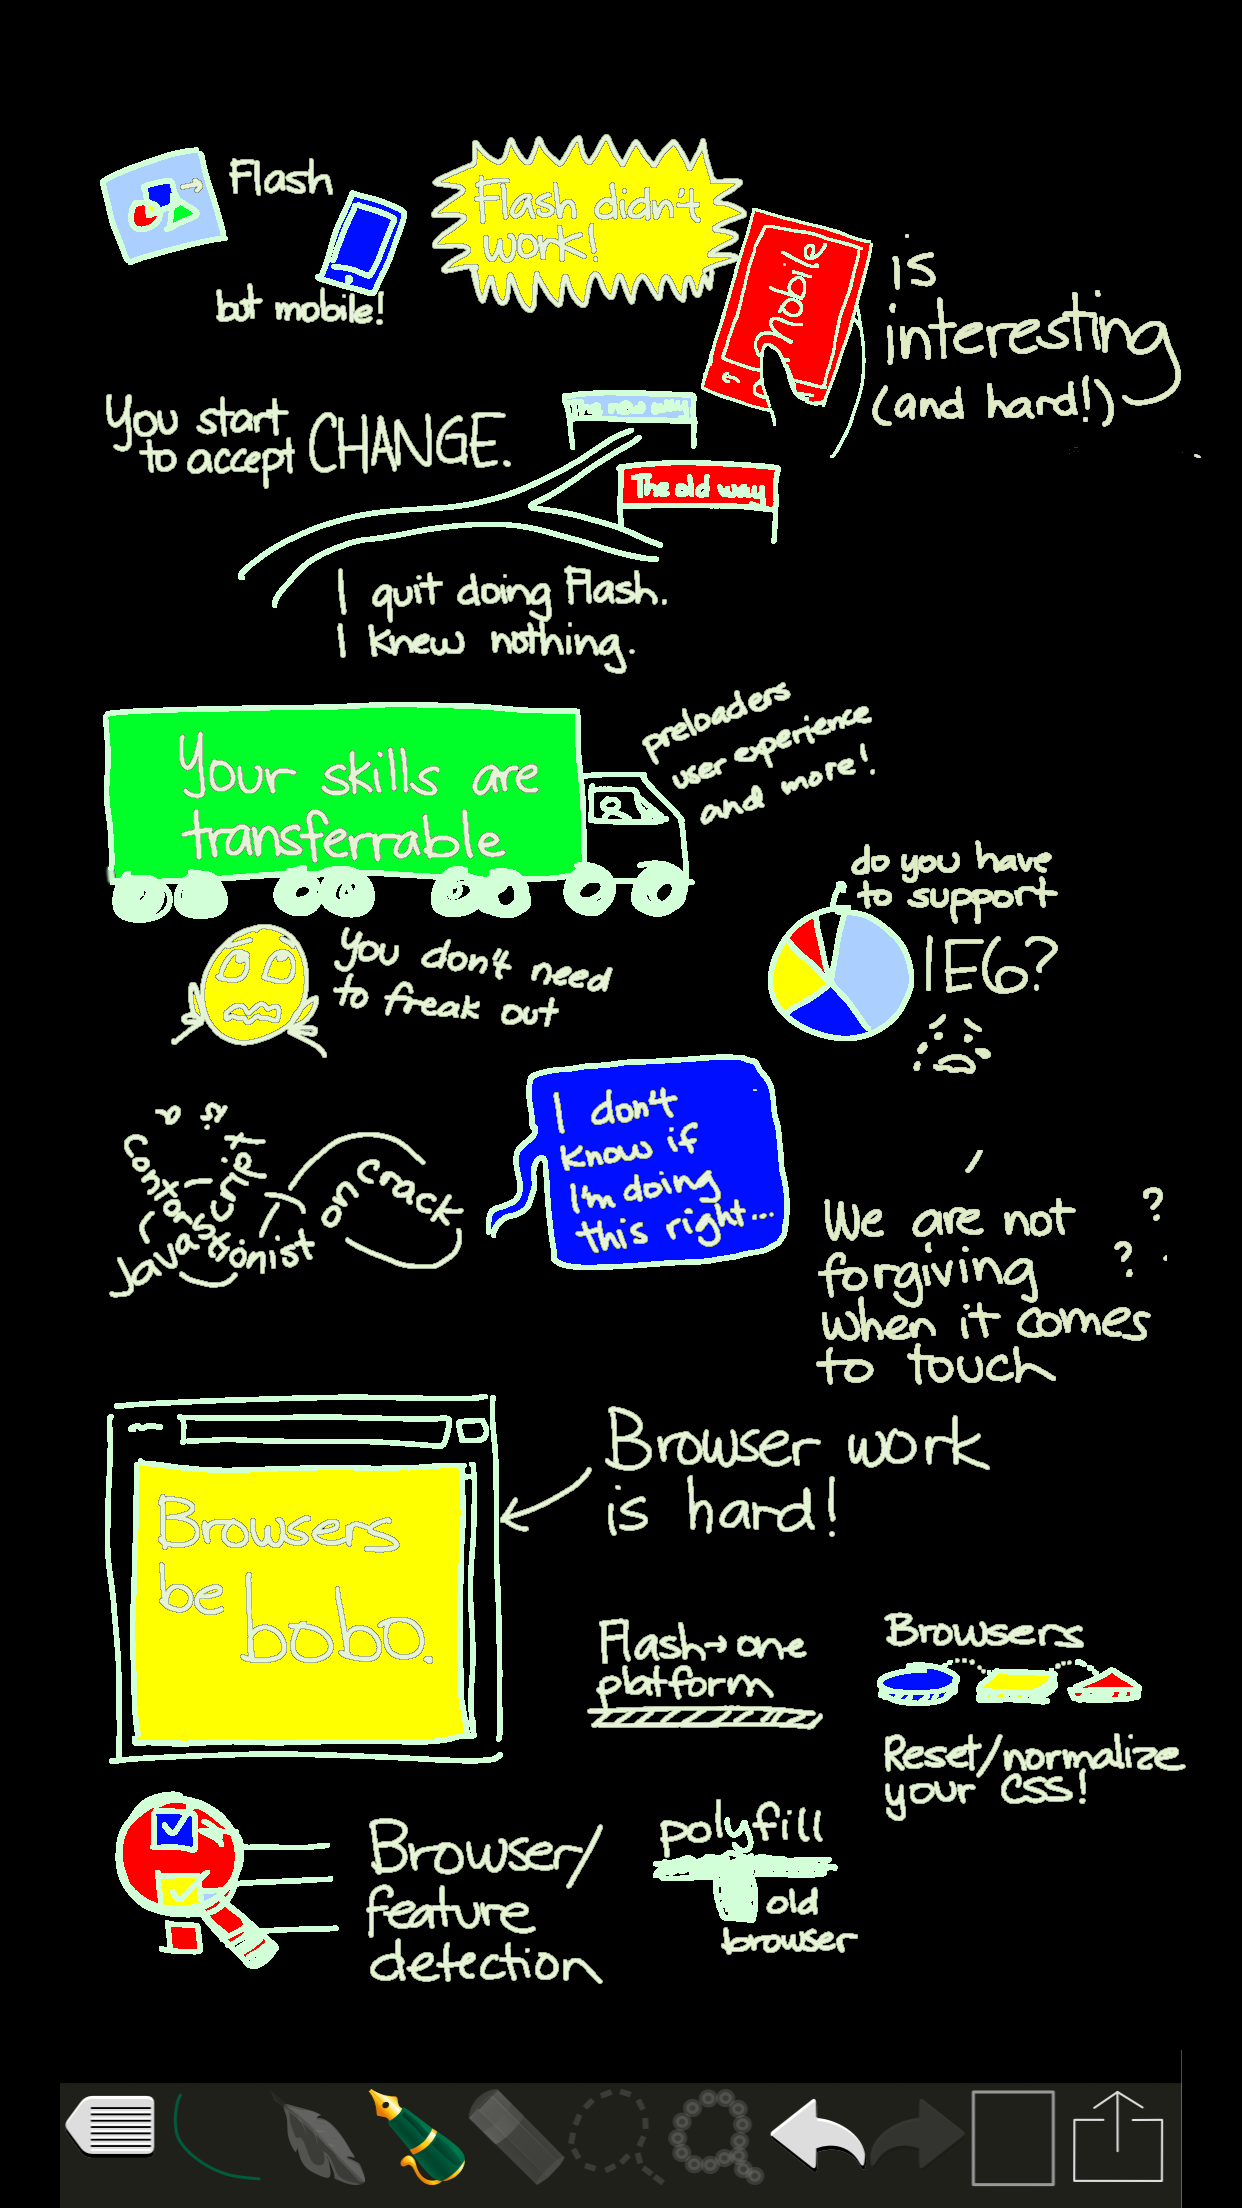 Flash
but mobile!
Flash didn't
work!
Mobile
is
interesting
(and hard!)
You start
to accept CHANGE.
The new way
The old way
I quit doing Flash.
I knew nothing.
Your skills are
transferrable
preloaders
user experience
and more!
do you have
to support
IE6?
you don't need
to freak out
Javascript
is a
contortionist
on crack
I don't
know if
I'm doing
this right...
We are not
forgiving
when it comes
to touch
? ?
Browsers
be bobo.
Browser work
is hard!
Flash→one
platform
Browsers
Reset/normalize
your CSS!
Browser/
feature
detection
polyfill
old
browser